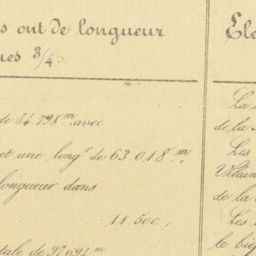 s ont de longueur
ues 3/4.
de 14 798m avec
et une longr de 63.018m
longueur dans
11.500.
tale de
Ele
La
de la
Les
Vilain
de la
Les
le